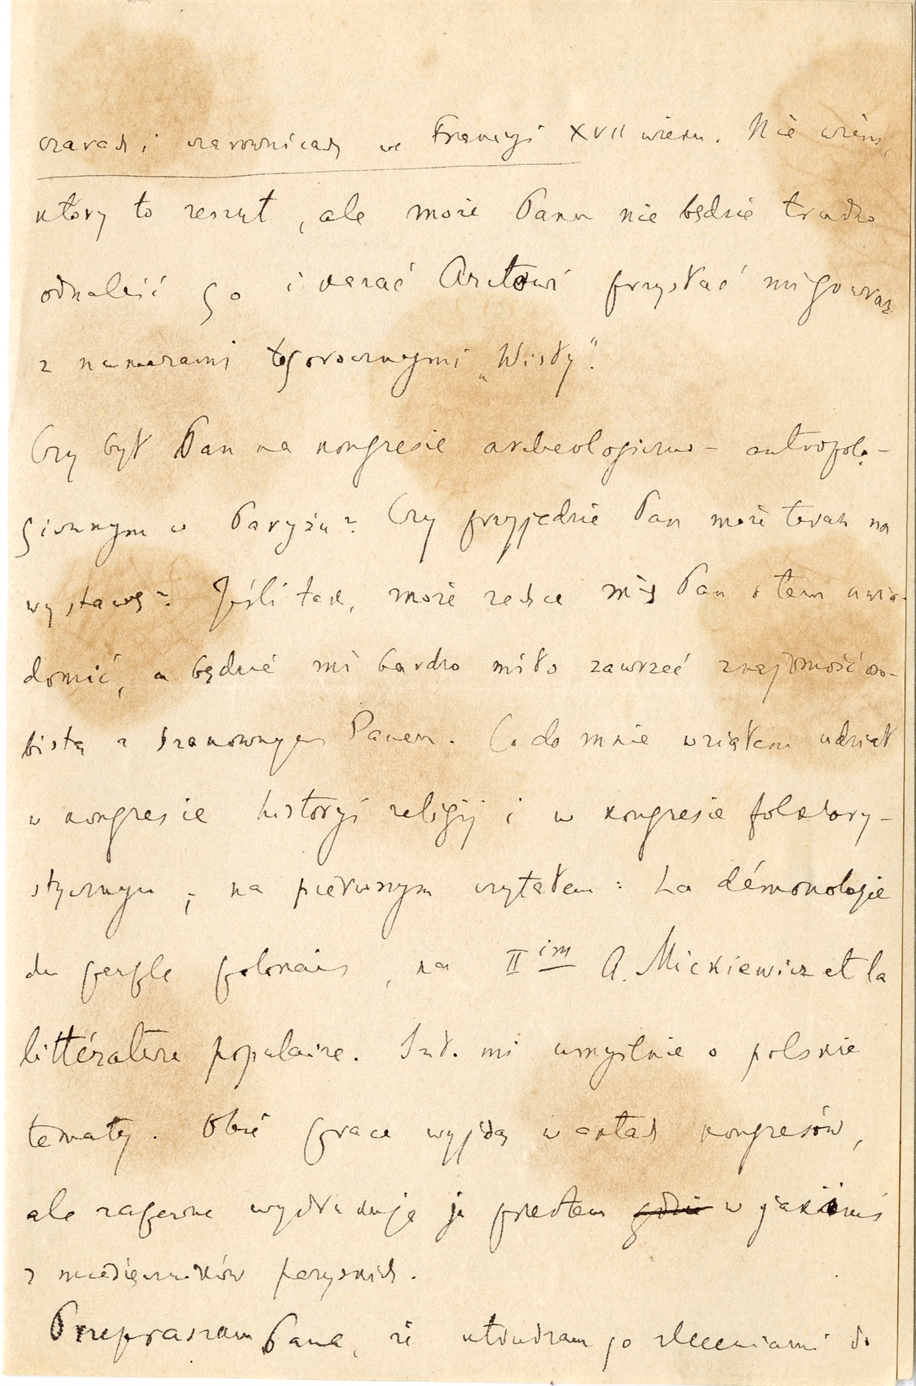 czarach i czarownicach we Francyi XVII wieku. Nie wiem,
który to zeszyt, ale może Panu nie będzie trudno
odnaleść go i kazać Arctowi przysłać mi go wraz
z numerami tegorocznymi „Wisły”.
Czy był Pan na kongresie archeologiczno- antropolo-
gicznym w Paryżu? Czy przyjedzie Pan może teraz na
wystawę? Jeśli tak, może zechce mię Pan o tem uwia-
domić, a będzie mi bardzo miło zawrzeć znajomość oso-
bistą z Szanownym Panem. Co do mnie wziąłem udział
w kongresie historyi religij i w kongresie folklory-
stycznym; na pierwszym czytałem: La démonologie
du peuple polonais, na II im A. Mickiewicz et la
littérature populaire. Szł. mi umyślnie o polskie
tematy. Obie prace wyjdą w aktach kongresów,
ale zapewne wydrukuję je przedtem gdzie w jakimś
z miesięczników paryskich.
Przepraszam Pana, że utrudzam go zleceniami do